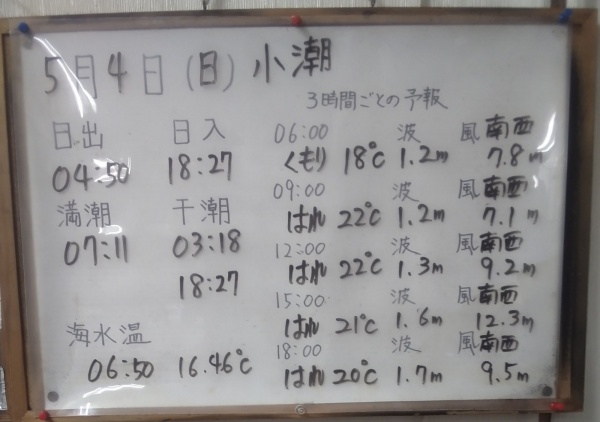 5月4日(日) 小潮
3時間ごとの予報
日出 日入
04:50 18:27
満潮 干潮
07:11 03:18
18:27
海水温
06:50 16.46℃
06:00 波 風 南西
くもり 18℃ 1.2m 7.8m
09:00 波 風 南西
はれ 22℃ 1.2m 7.1m
12:00 波 風 南西
はれ 22℃ 1.3m 9.2m
15:00 波 風 南西
はれ 21℃ 1.6m 12.3m
18:00 波 風 南西
はれ 20℃ 1.7m 9.5m